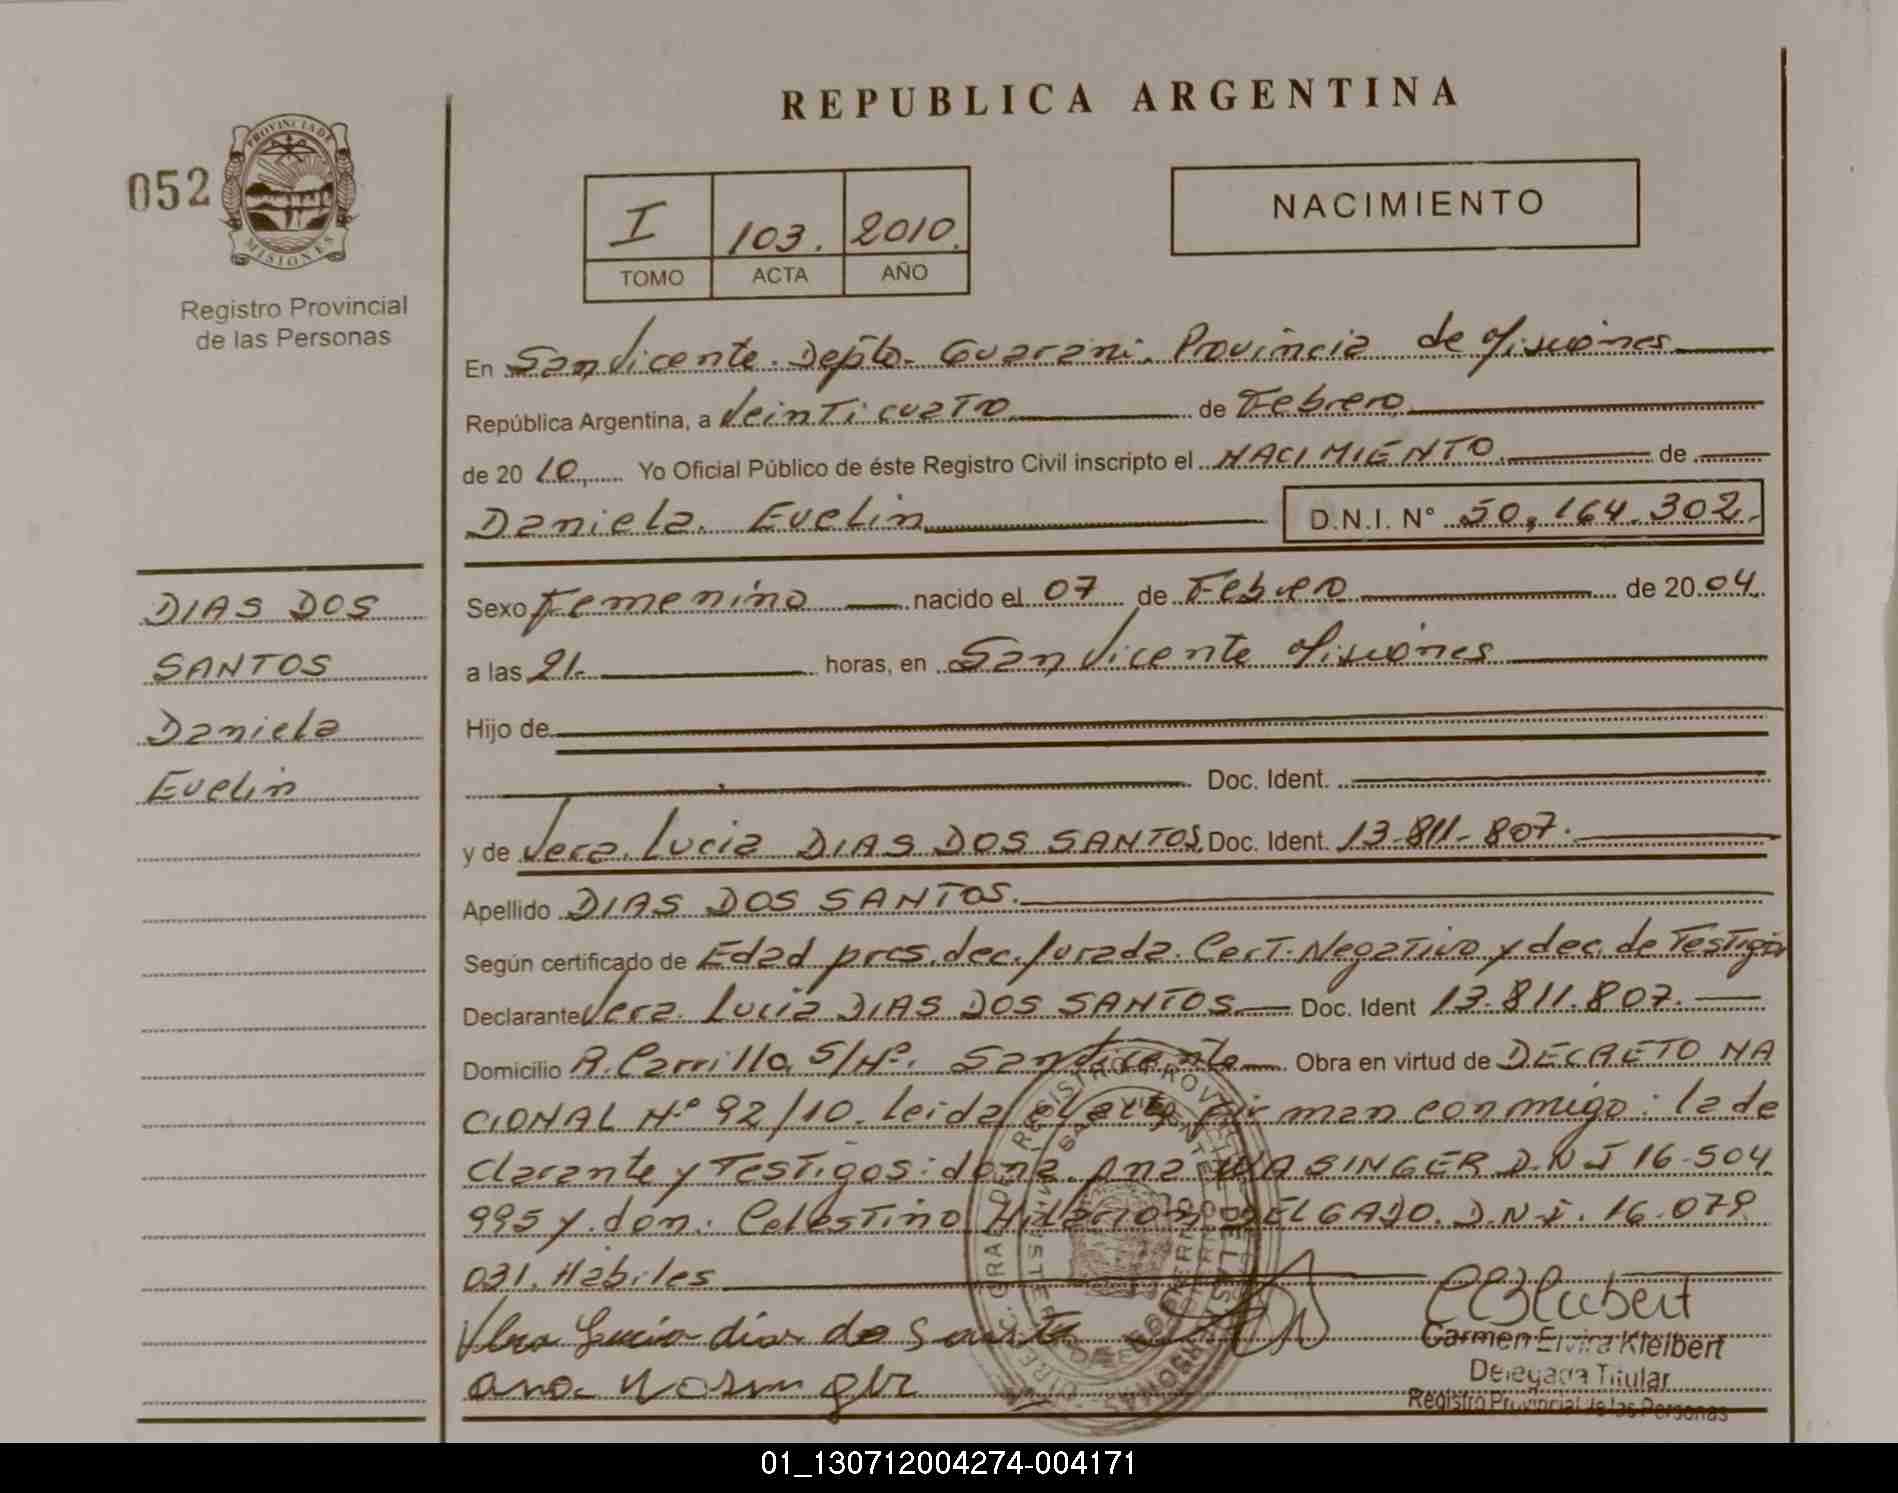 REPUBLICA ARGENTINA
052
PROVINCIA DE
MISIONES
Registro Provincial
de las Personas
I 103. 2010.
TOMO ACTA AÑO
NACIMIENTO
En San Vicente. Depto. Guarani. Provincia de Misiones
República Argentina, a Veinticuatro de Febrero
de 20 10, Yo Oficial Público de éste Registro Civil inscripto el NACIMIENTO de
Daniela. Evelin D.N.I. N° 50,164.302.
DIAS DOS
SANTOS
Daniela
Evelin
Sexo Femenino nacido el 07 de Febrero de 20 04.
a las 21. horas, en San Vicente Misiones
Hijo de
Doc. Ident.
y de Vera. Lucia DIAS DOS SANTOS Doc. Ident. 13.811.807.
Apellido DIAS DOS SANTOS.
Según certificado de Edad pres. dec. Jurada. Cert. Negativo y dec. de Testigos
Declarante Vera. Lucia DIAS DOS SANTOS Doc. Ident 13.811.807.
Domicilio R. Carrillo S/Nº. San Vicente Obra en virtud de DECRETO NA
CIONAL Nº 92/10. Leida el acta, firman conmigo: la de
clarante y Testigos: doña. Ana WASINGER D.N.I 16.504
995 y. don. Celestino Hilarion DELGADO. D.N.I. 16.079
031. Habiles
Vera Lucia dias do Santo
Carmen Elvira Kleibert
Delegada Titular
ana Wasingler
Registro Provincial de las Personas
01_130712004274-004171